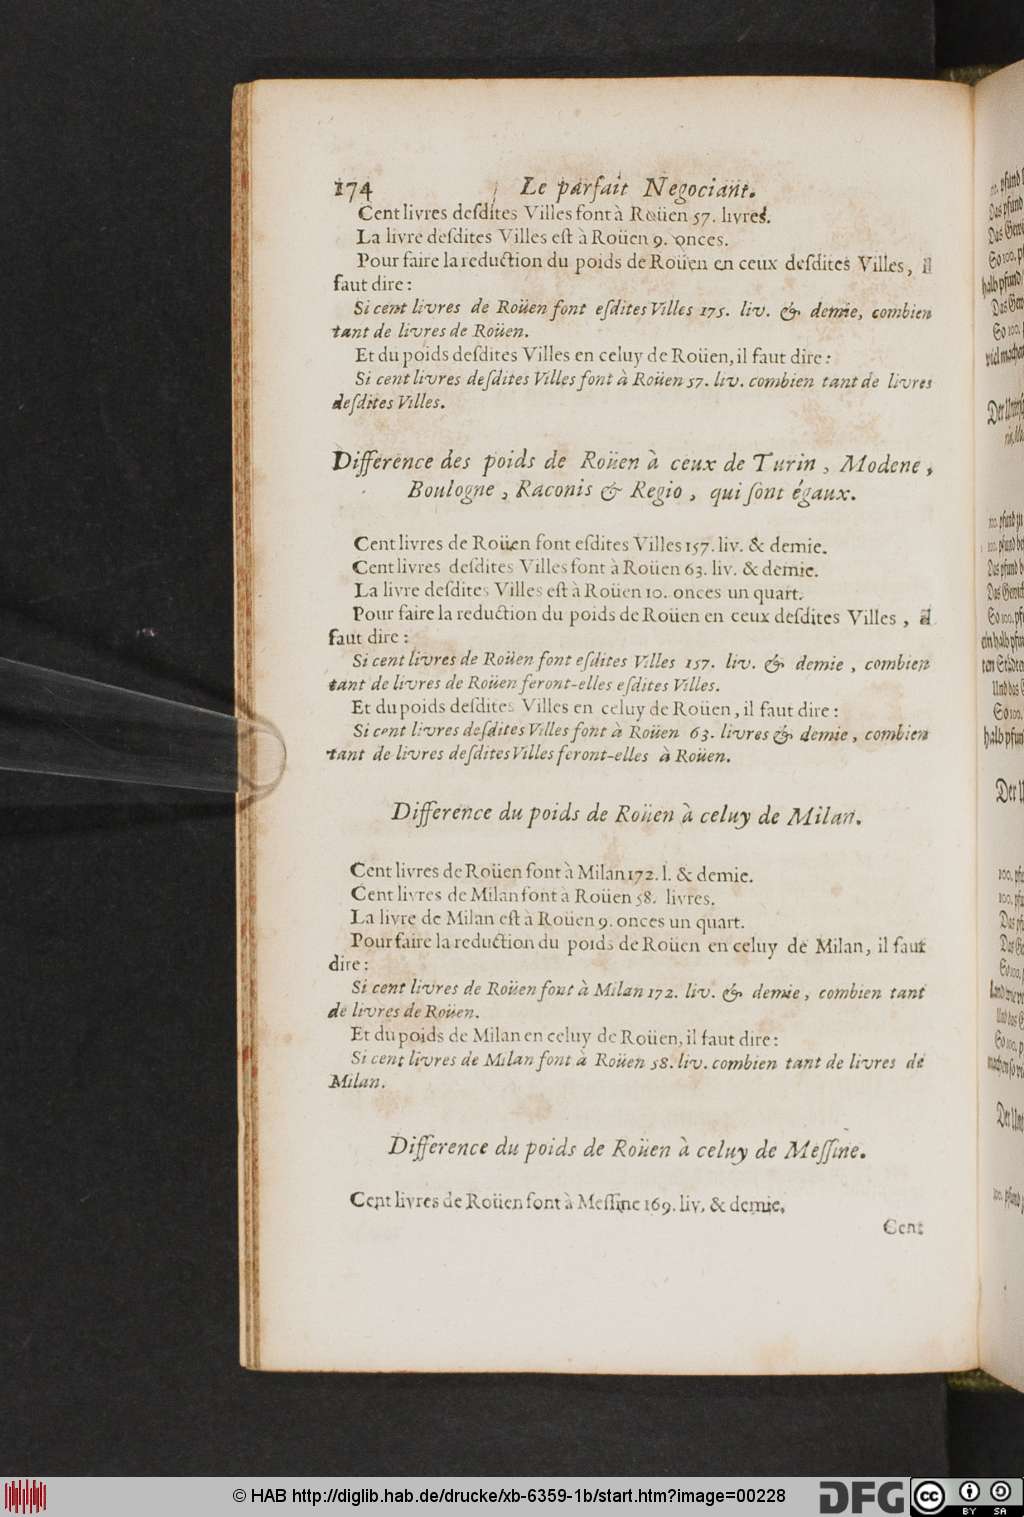 174 Le parfait Negociant.
Cent livres deſdites Villes font à Roüen 57. livres.
La livre deſdites Villes eſt à Roüen 9. onces.
Pour faire la reduction du poids de Roüen en ceux deſdites Villes, il
faut dire:
Si cent livres de Roüen font eſdites Villes 175. liv. & demie, combien
tant de livres de Roüen.
Et du poids deſdites Villes en celuy de Roüen, il faut dire:
Si cent livres deſdites Villes font à Roüen 57. liv. combien tant de livres
deſdites Villes.
Difference des poids de Roüen à ceux de Turin, Modene,
Boulogne, Raconis & Regio, qui ſont égaux.
Cent livres de Roüen font eſdites Villes 157. liv. & demie.
Cent livres deſdites Villes font à Roüen 63. liv. & demie.
La livre deſdites Villes eſt à Roüen 10. onces un quart.
Pour faire la reduction du poids de Roüen en ceux deſdites Villes, il
faut dire:
Si cent livres de Roüen font eſdites Villes 157. liv. & demie, combien
tant de livres de Roüen feront-elles eſdites Villes.
Et du poids deſdites Villes en celuy de Roüen, il faut dire:
Si cent livres deſdites Villes font à Roüen 63. livres & demie, combien
tant de livres deſdites Villes feront-elles à Roüen.
Difference du poids de Roüen à celuy de Milan.
Cent livres de Roüen font à Milan 172. l. & demie.
Cent livres de Milan font à Roüen 58. livres.
La livre de Milan eſt à Roüen 9. onces un quart.
Pour faire la reduction du poids de Roüen en celuy de Milan, il faut
dire:
Si cent livres de Roüen font à Milan 172. liv. & demie, combien tant
de livres de Roüen.
Et du poids de Milan en celuy de Roüen, il faut dire:
Si cent livres de Milan font à Roüen 58. liv. combien tant de livres de
Milan.
Difference du poids de Roüen à celuy de Meſſine.
Cent livres de Roüen font à Meſſine 169. liv. & demie.
Cent
© HAB http://diglib.hab.de/drucke/xb-6359-1b/start.htm?image=00228
DFG
cc BY SA